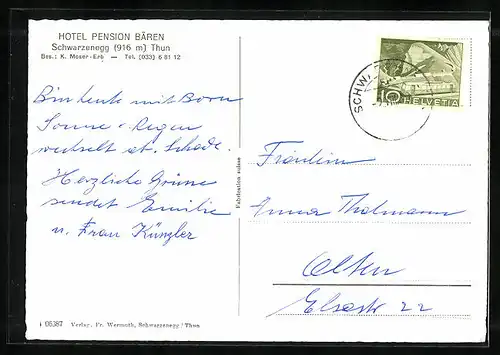 HOTEL PENSION BÄREN
Schwarzenegg (916 m) Thun
Bes.: K. Moser-Erb — Tel. (033) 6 81 12
Bin heute mit Born
Sonne & Regen
wechselt ab. Schade.
Herzliche Grüsse
sendet Emilie
u. Frau Künzler
1 06387 Verlag Fr. Wermuth, Schwarzenegg / Thun
Fabrication suisse
SCHWARZ
10 HELVETIA
Fräulein
Anna Thalmann
Olten
Elsastr 22